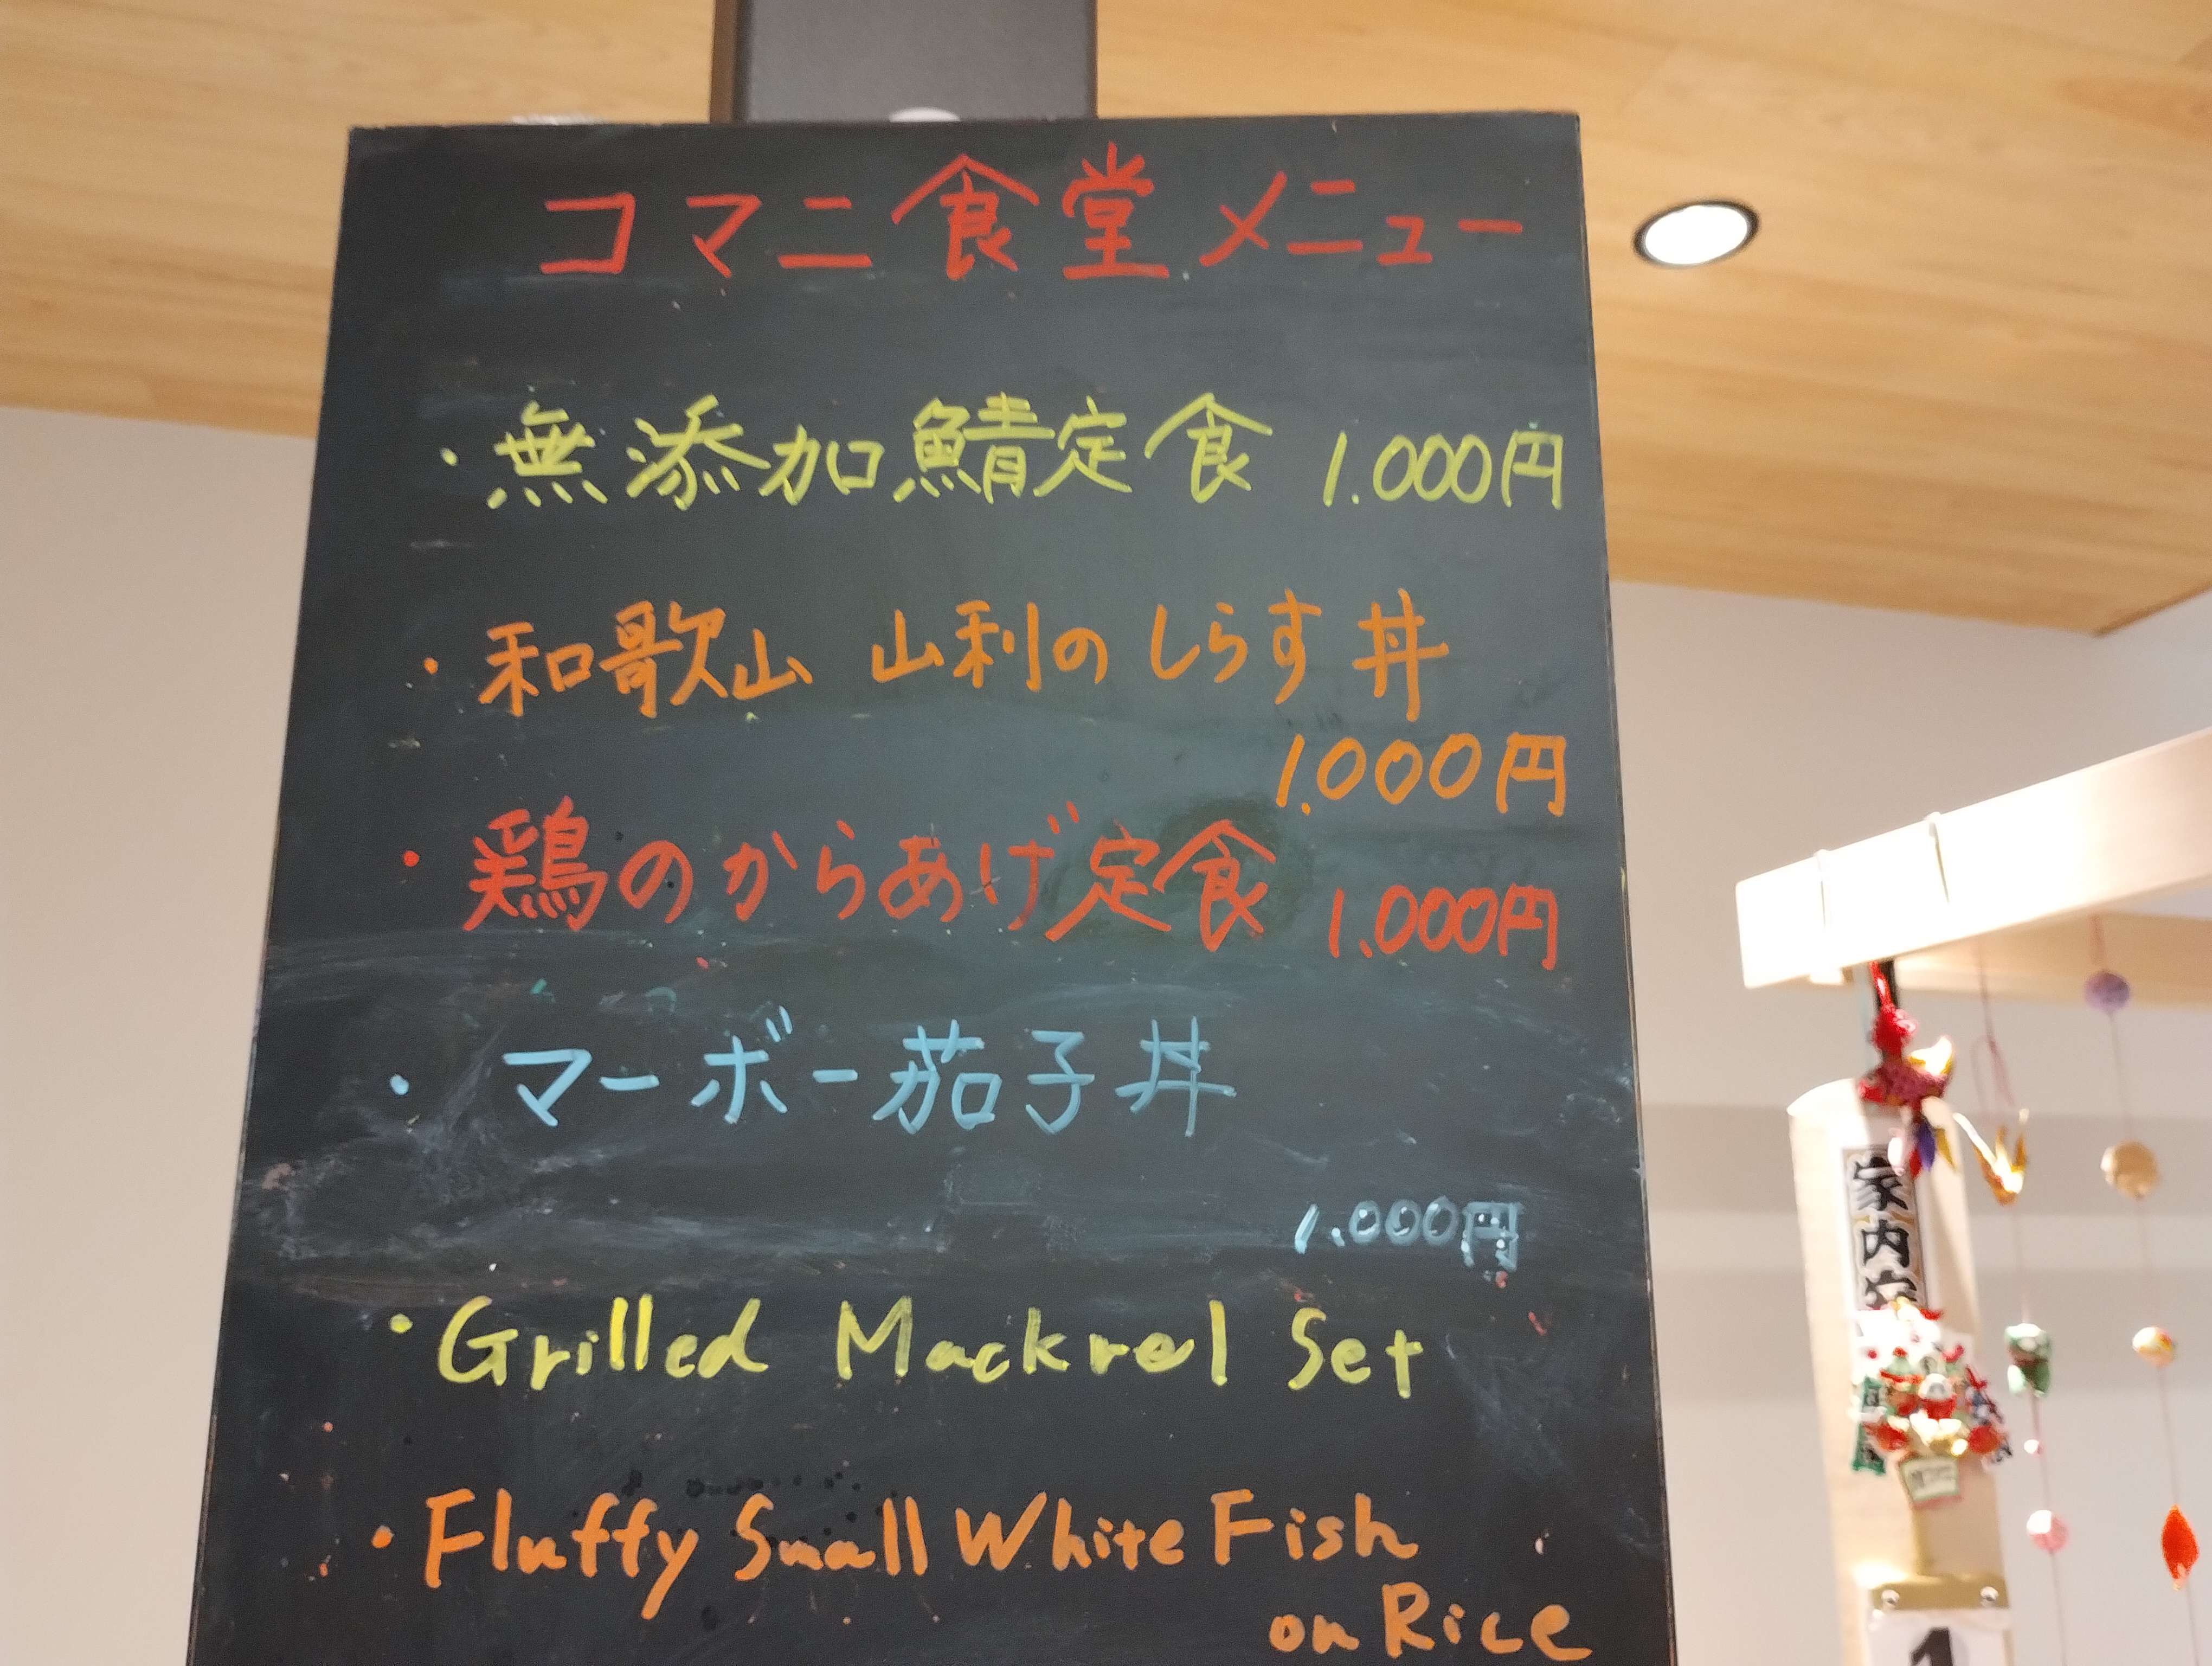 コマニ食堂メニュー
・無添加鯖定食 1.000円
・和歌山 山利のしらす丼
1.000円
・鶏のからあげ定食 1.000円
・マーボー茄子丼
1.000円
・Grilled Mackrel Set
・Fluffy Small White Fish
on Rice
家内安
1